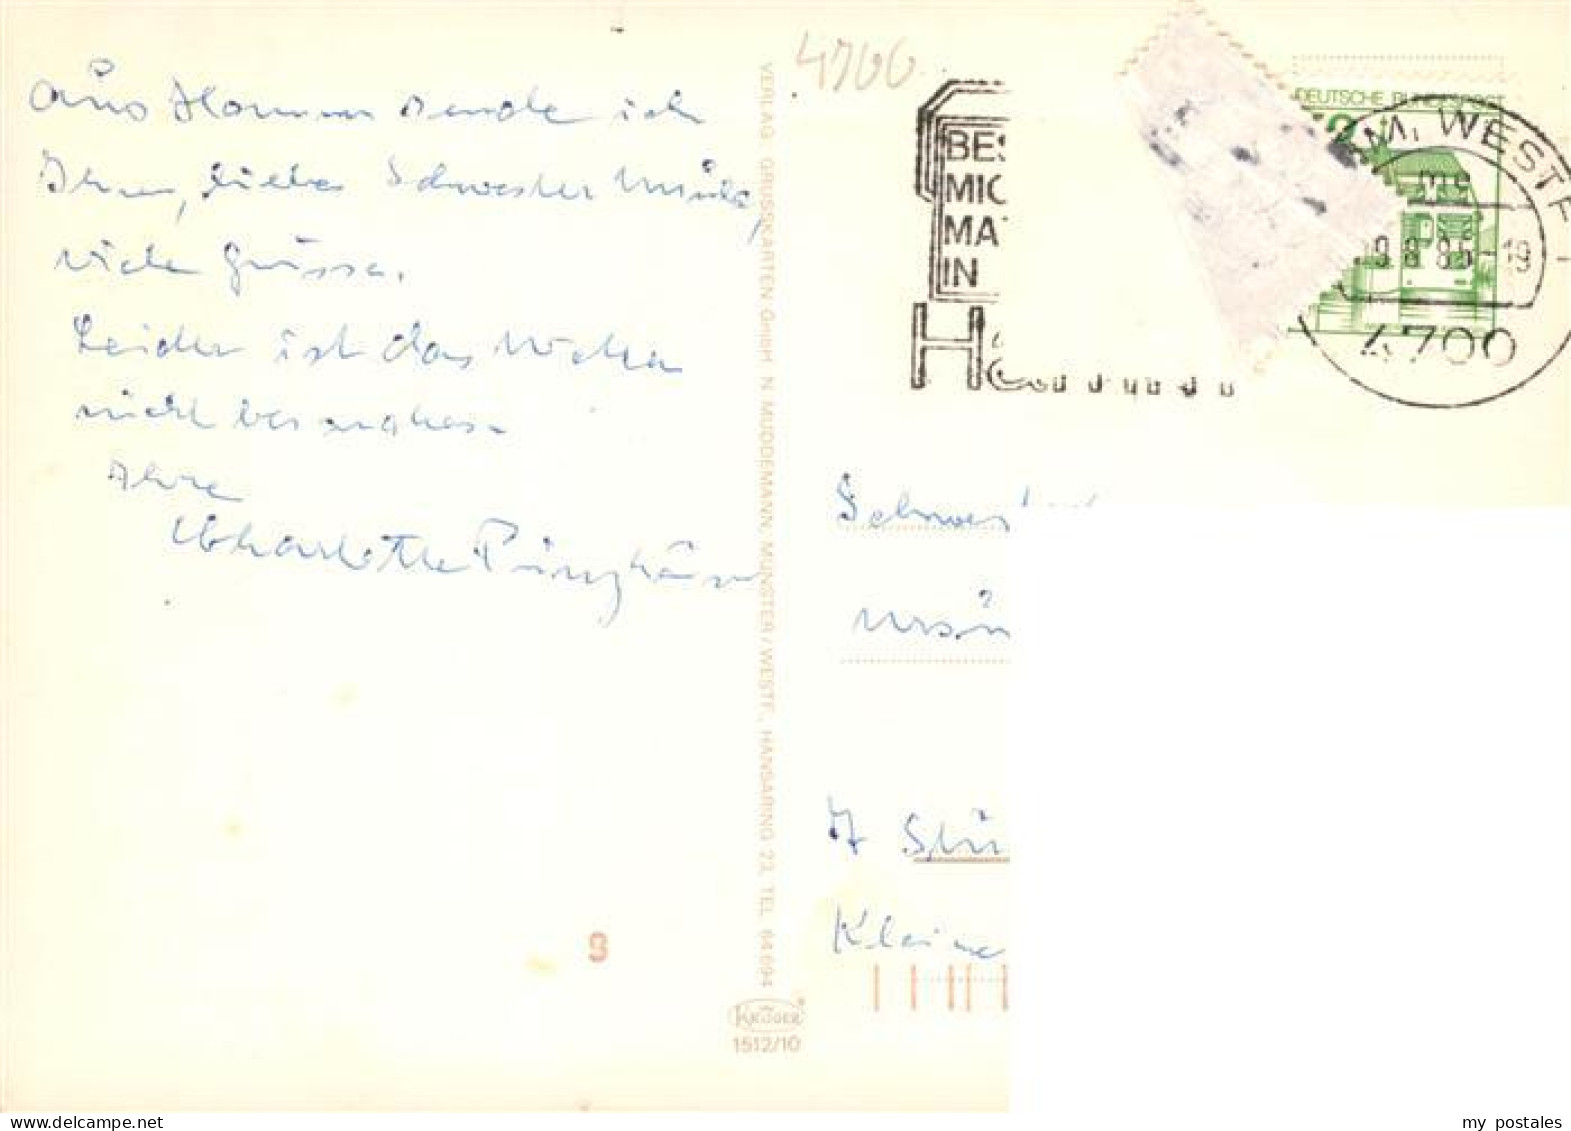 Aus Hamm sende ich
Ihnen, liebe Schwester
viele Grüsse.
Leider ist das Wetter
nicht besonders.
Ihre
Charlotte
VERLAG GRUSSKARTEN GmbH N. MUDDEMANN, MÜNSTER / WESTF., HANSARING 23, TEL 64694
KRÜGER
1512/10
9
4700
BES
MIC
MA
IN
DEUTSCHE BUNDESPOST
MM, WESTF 1
me
9.8.85-19
4700
Schwes
H Stü
Kleine
my postales